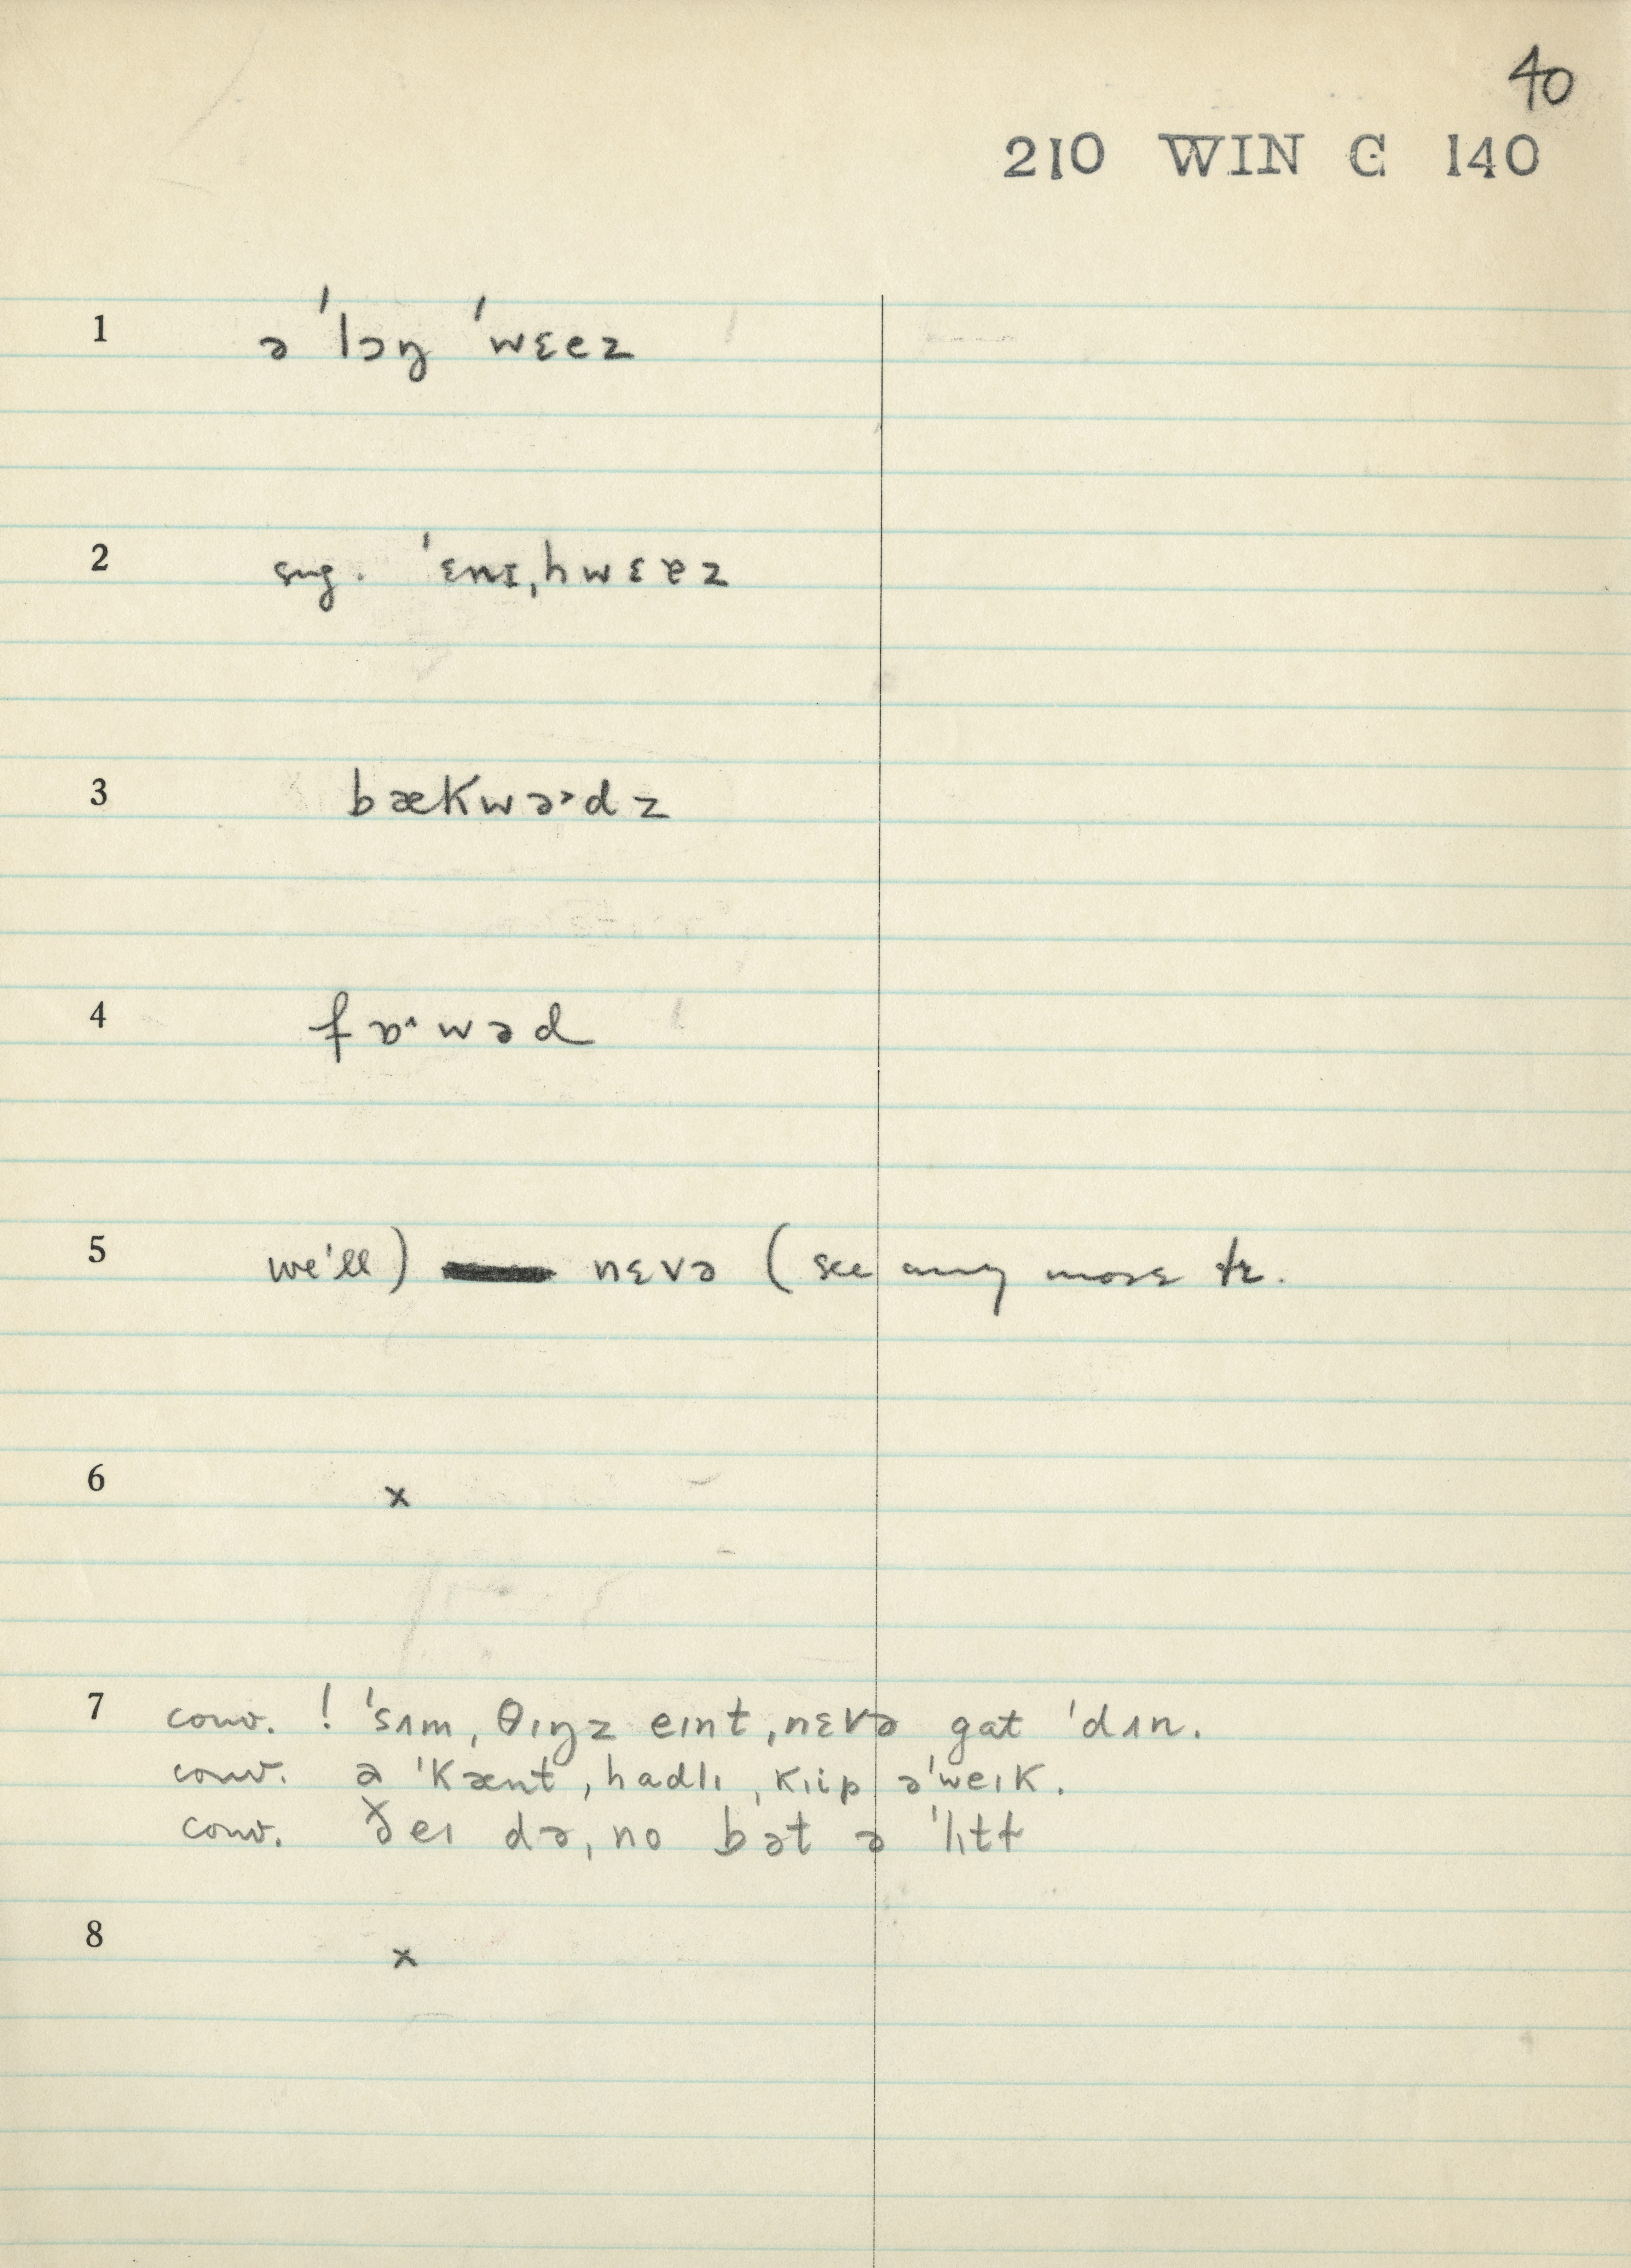 40
210 WIN C 140
1 ə ˈlɔŋ ˈwɛez
2 sug. ˈɛnɪˌhwɛɐz
3 bækwə˃dz
4 fɒ˄wəd
5 we'll) nɛvə (see any more tr.
6 x
7 conv. ! ˈsʌmˌθıŋz eınt ˌnɛvə gat ˈdʌn.
conv. a ˈkænt ˌhadlı ˌkıip əˈweık.
conv. ðeı dəˌno bət ə ˈlıtɫ
8 x